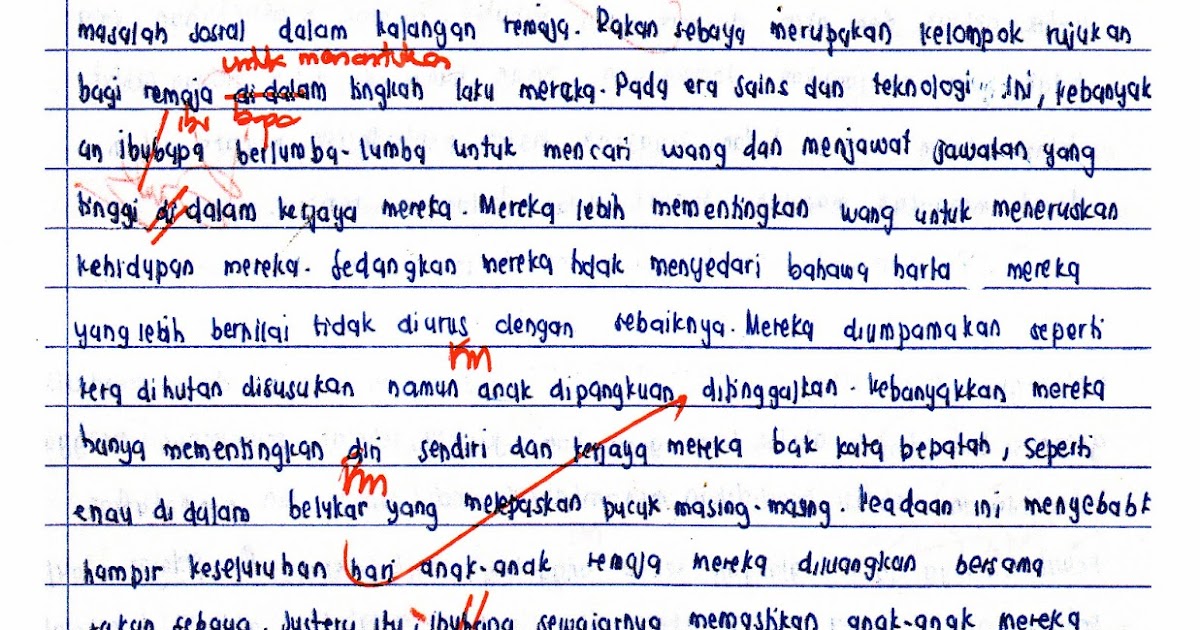 masalah sosial dalam kalangan remaja. Rakan sebaya merupakan kelompok rujukan
untuk menentukan
bagi remaja di dalam tingkah laku mereka. Pada era sains dan teknologi ini, kebanyak
ibu bapa
an ibubapa berlumba-lumba untuk mencari wang dan menjawat jawatan yang
tinggi di dalam kerjaya mereka. Mereka lebih mementingkan wang untuk meneruskan
kehidupan mereka. Sedangkan mereka tidak menyedari bahawa harta mereka
yang lebih bernilai tidak diurus dengan sebaiknya. Mereka diumpamakan seperti
Pm
kera dihutan disusukan namun anak dipangkuan ditinggalkan. Kebanyakkan mereka
hanya mementingkan diri sendiri dan kerjaya mereka bak kata bepatah, seperti
Pm
enau di dalam belukar yang melepaskan pucuk masing-masing. Keadaan ini menyebabk
hampir keseluruhan hari anak-anak remaja mereka diluangkan bersama
rakan sebaya. Justeru itu, ibubapa sewajarnya memastikan anak-anak mereka